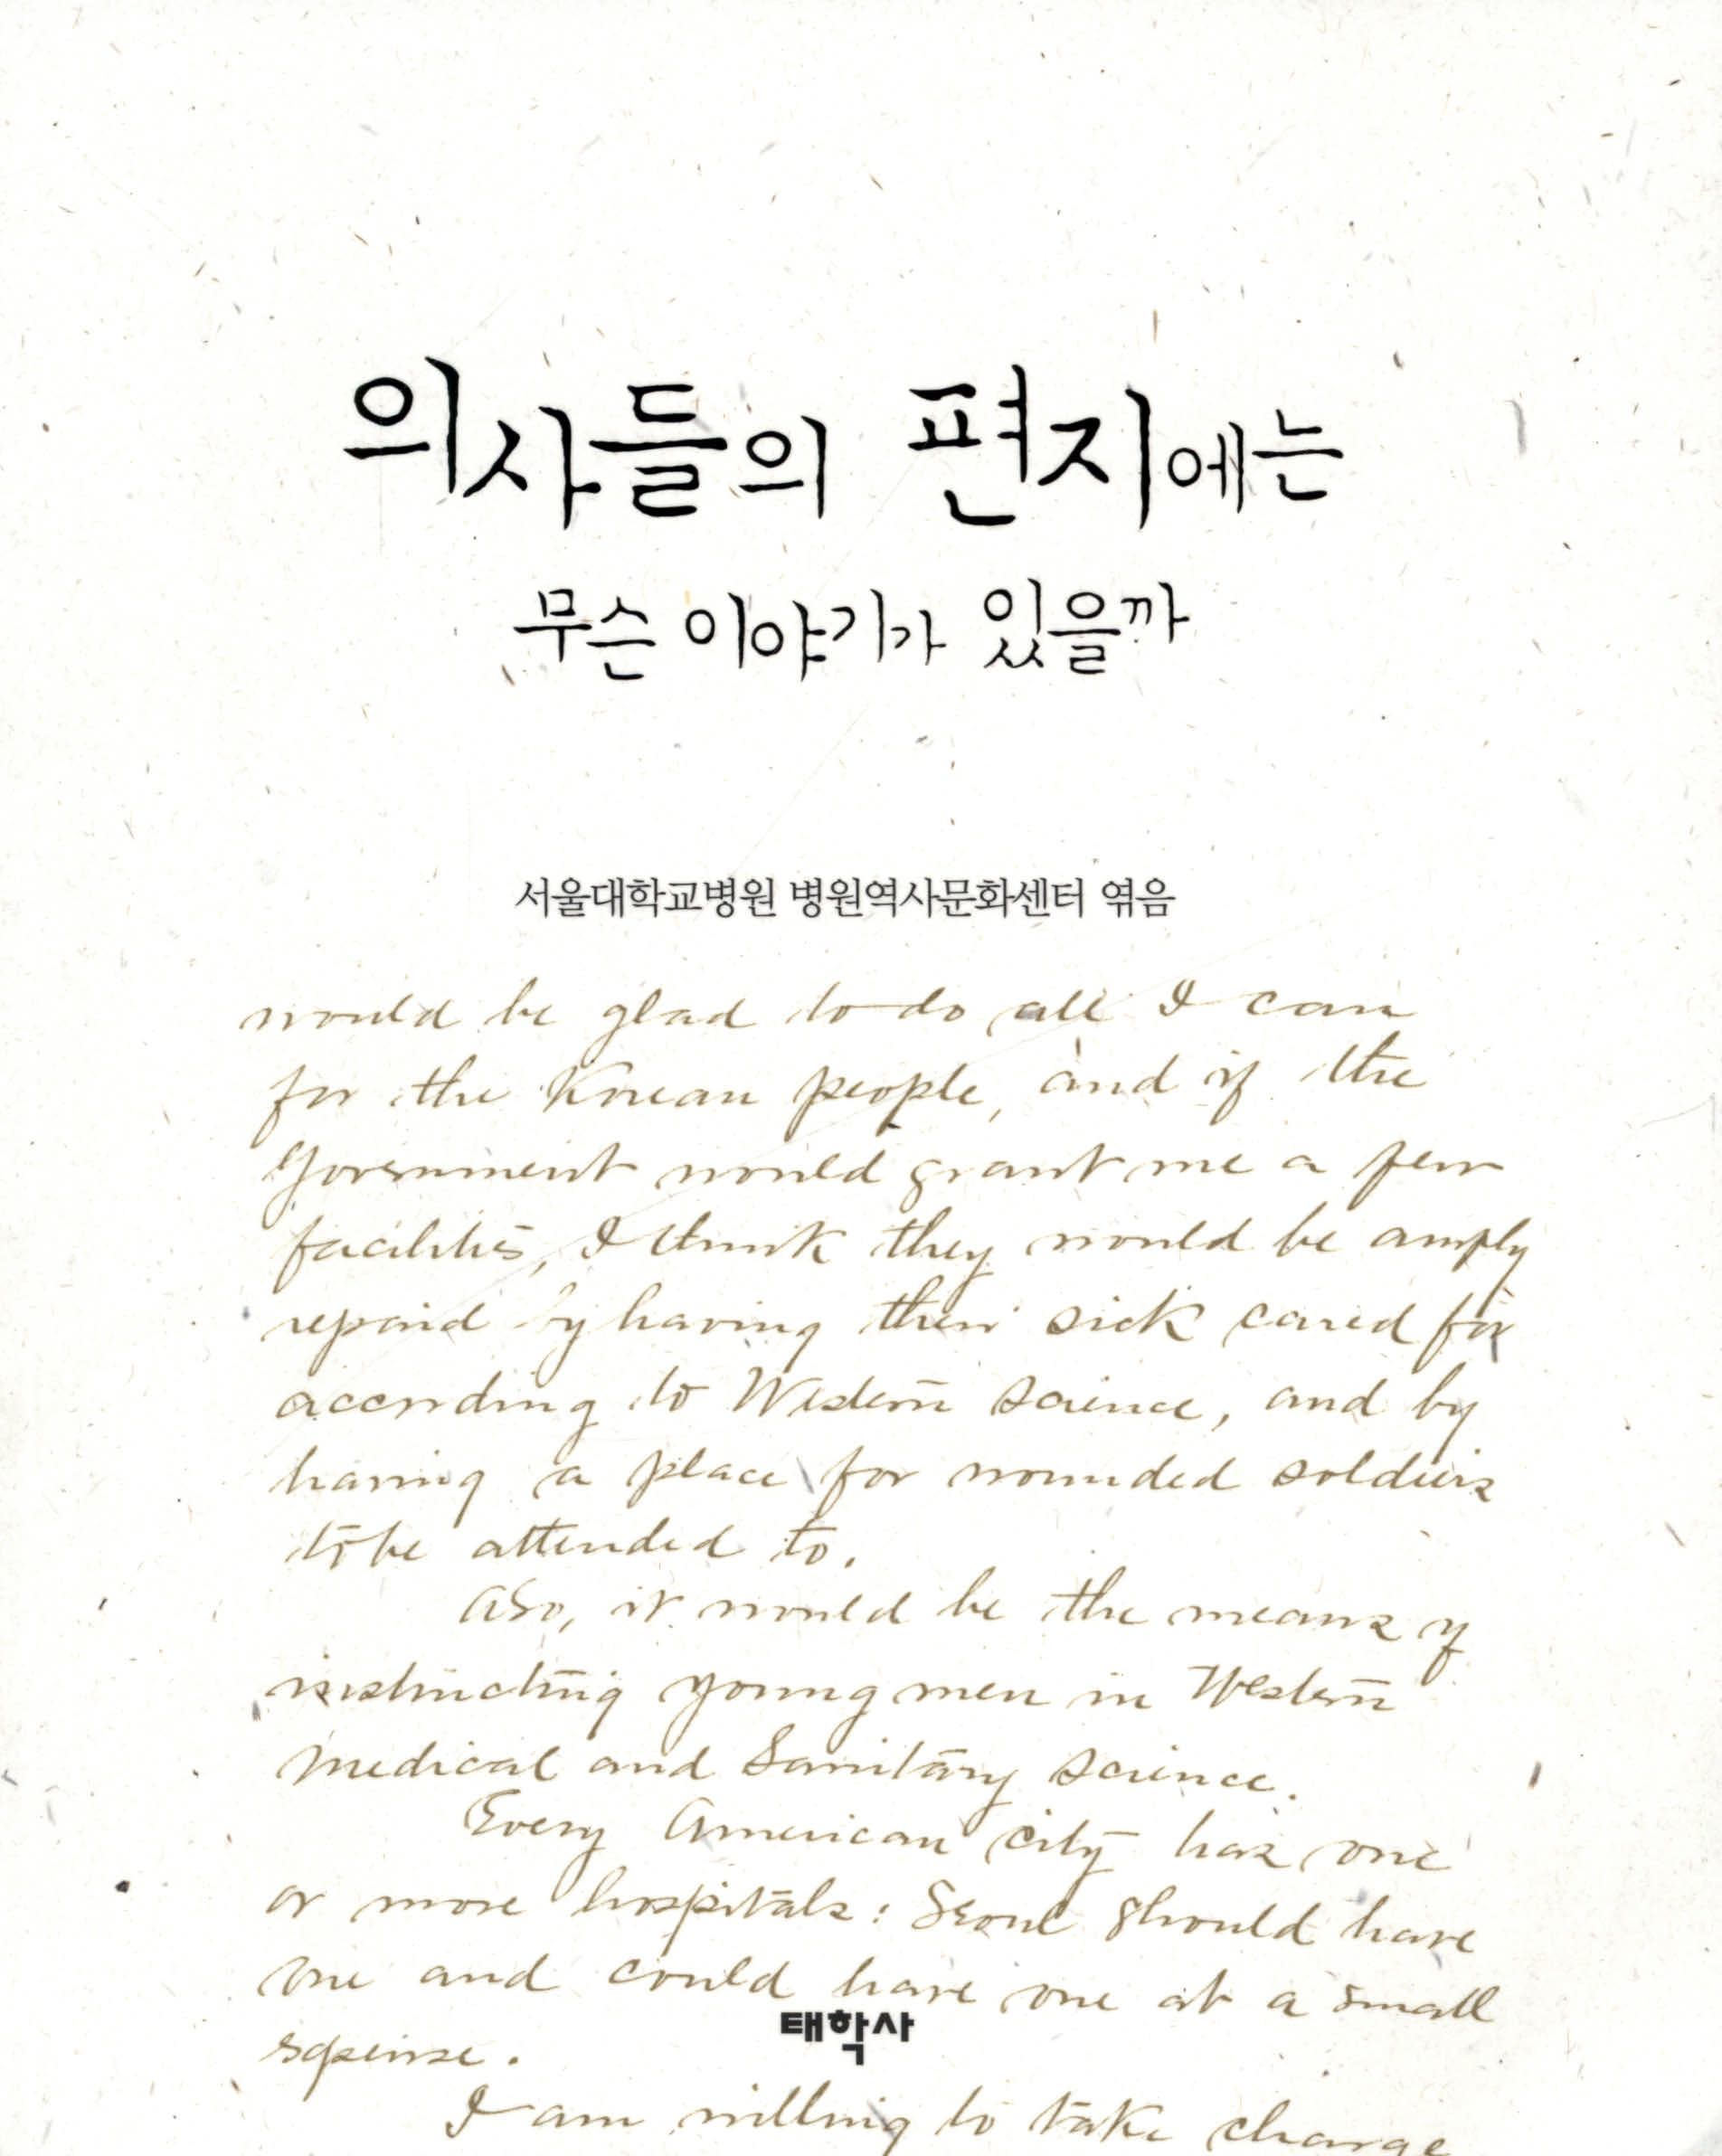 의사들의 편지에는
무슨 이야기가 있을까
서울대학교병원 병원역사문화센터 엮음
would be glad to do all I can
for the Korean people, and if the
Government would grant me a few
facilities, I think they would be amply
repaid by having their sick cared for
according to Western science, and by
having a place for wounded soldiers
to be attended to.
Also, it would be the means of
instructing young men in Western
Medical and Sanitary science.
Every American city has one
or more hospitals: Seoul should have
one and could have one at a small
expense.
태학사
I am willing to take charge